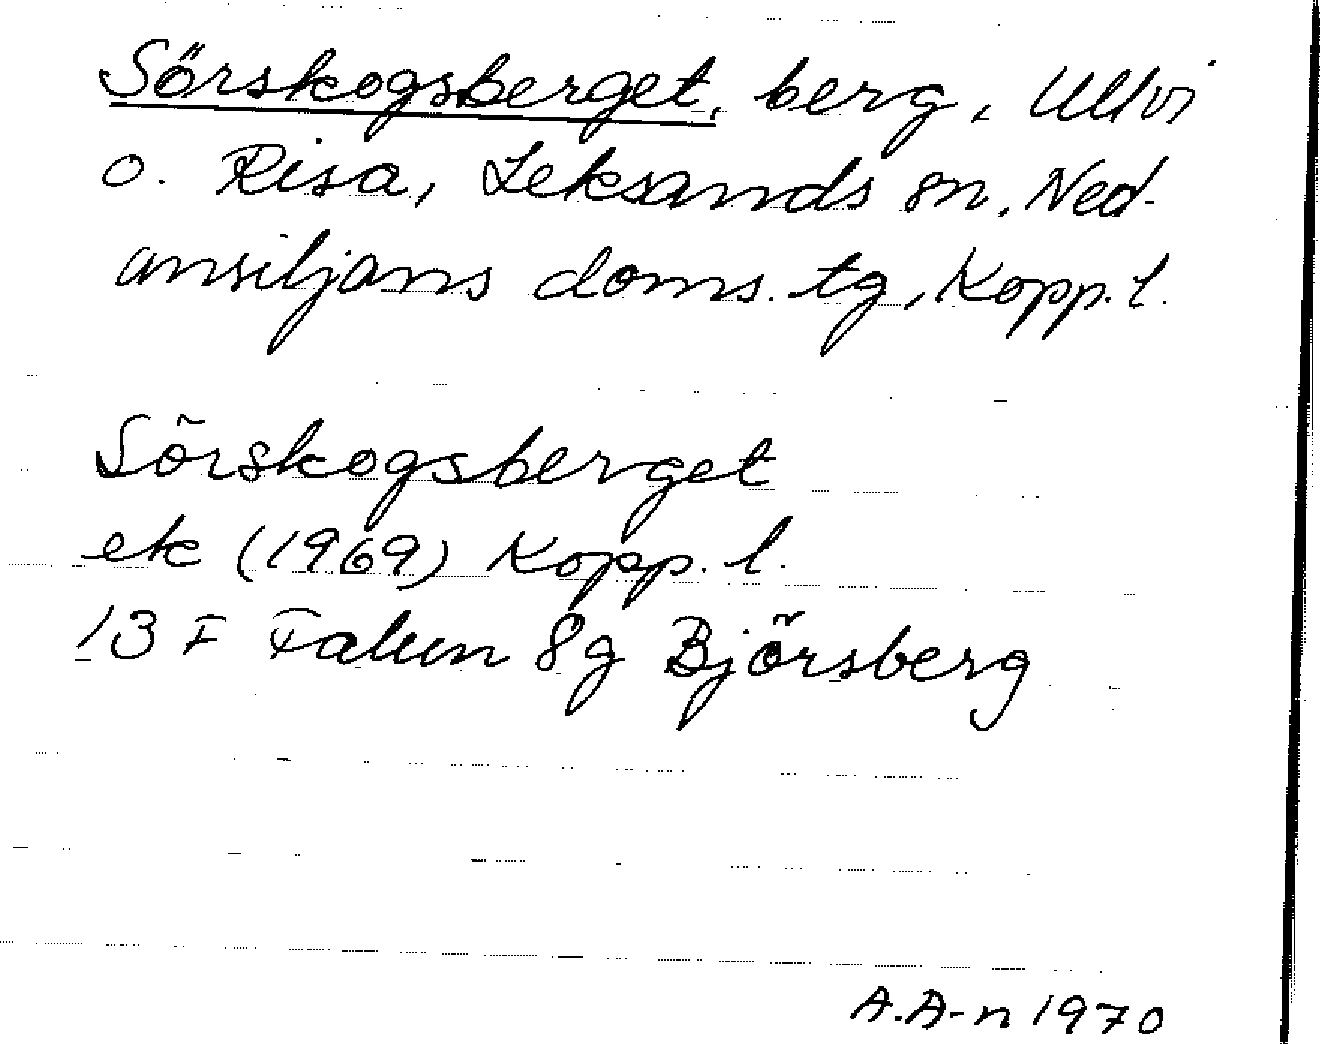 Sörskogsberget, berg, Ullvi
o. Risa, Leksands sn, Ned-
ansiljans doms. tg, Kopp. l.
Sörskogsberget
ek (1969) Kopp. l.
13 F Falun 8g Björsberg
A.A-n 1970